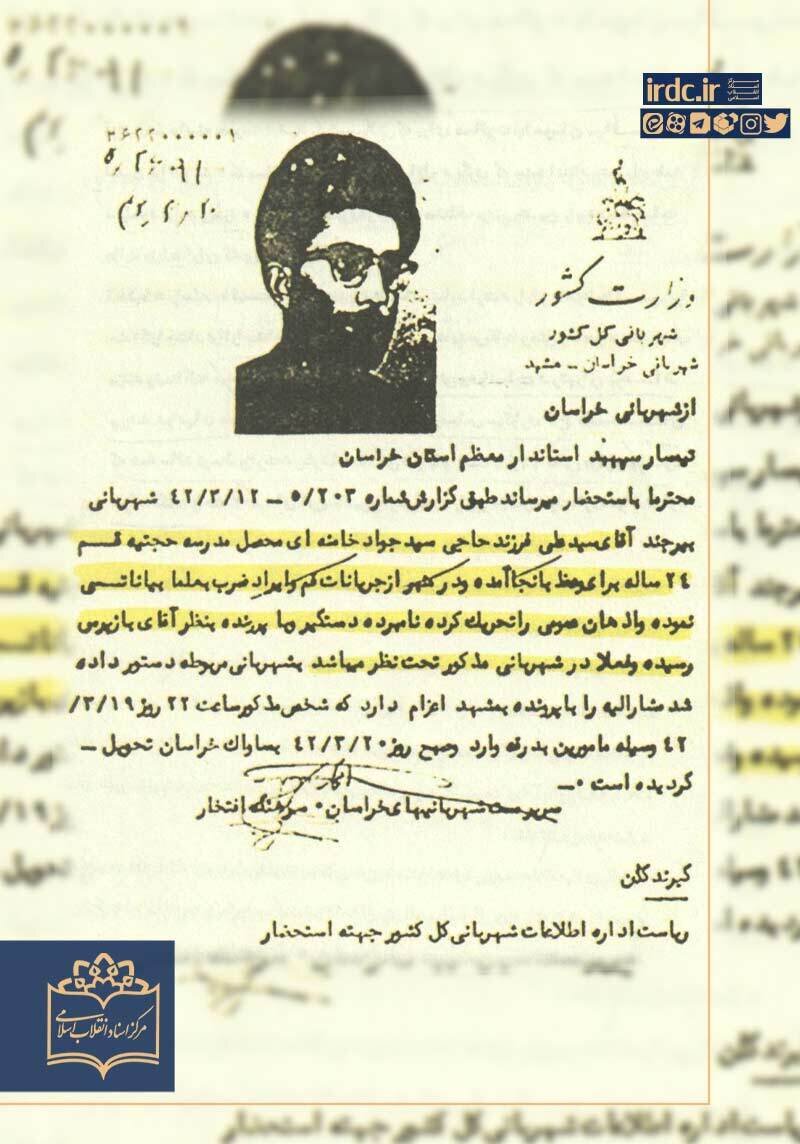 irdc.ir
مرکز اسناد انقلاب اسلامی
۲۶۲۲۰۰۰۰۰۰۹
وزارت کشور
شهربانی کل کشور
شهربانی خراسان - مشهد
از شهربانی خراسان
تیمسار سپهبد استاندار معظم استان خراسان
محترما باستحضار میرساند طبق گزارش شماره ۵/۲۰۳ - ۴۲/۳/۱۲ شهربانی
بیرجند آقای سید علی فرزند حاجی سید جواد خامنه ای محصل مدرسه حجتیه قم
۲۴ ساله برای وعظ بآنجا آمده و در از جریانات قم و ایراد ضرب بعلما بیاناتی
نموده واذهان عمومی را تحریک کرده نامبرده دستگیر وبا پرونده بنظر آقای بازپرس
رسیده وفعلا در شهربانی مذکور تحت نظر میباشد بشهربانی مربوطه دستور داده
شد مشارالیه را با پرونده بمشهد اعزام دارد که شخص مذکور ساعت ۲۲ روز ۳/۱۹/
۴۲ وسیله مامورین بدرقه وارد وصبح روز ۴۲/۳/۲۰ بساواک خراسان تحویل -
گردیده است ۰-
سرپرست شهربانیهای خراسان۰ سرهنگ افتخار
گیرندگان
ریاست اداره اطلاعات شهربانی کل کشور جهته استحضار
مرکز اسناد انقلاب اسلامی